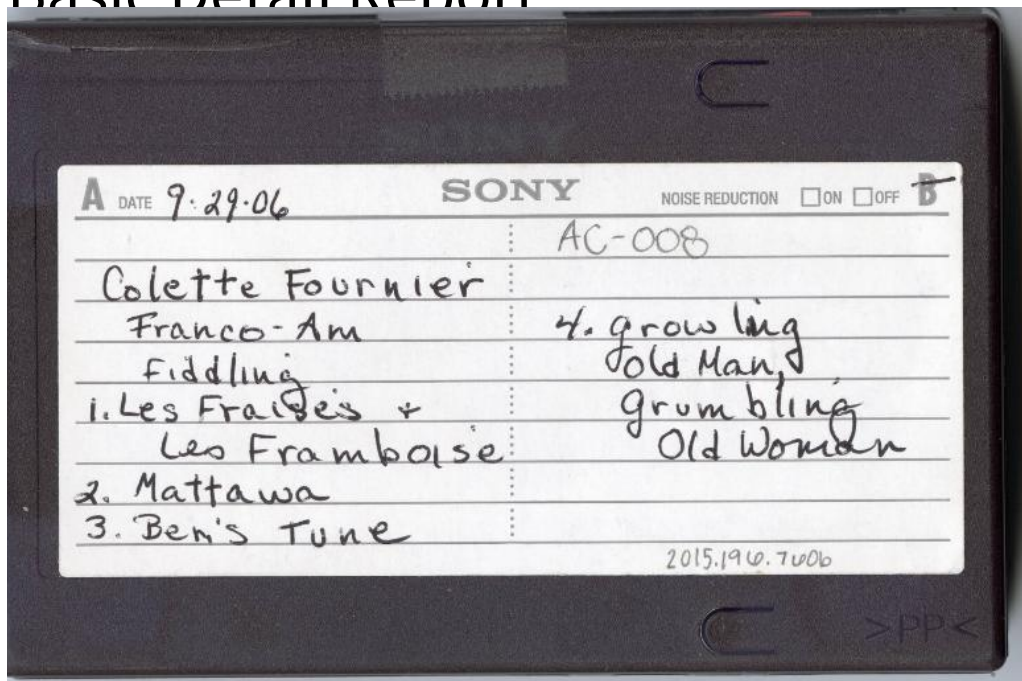 Basic Detail Report
A DATE 9.29.06 SONY NOISE REDUCTION ON OFF B
AC-008
Colette Fournier
Franco-Am
Fiddling
1. Les Fraises +
Les Framboise
2. Mattawa
3. Ben's Tune
4. growling
old Man,
grumbling
Old Woman
2015.196.7606
>PP<